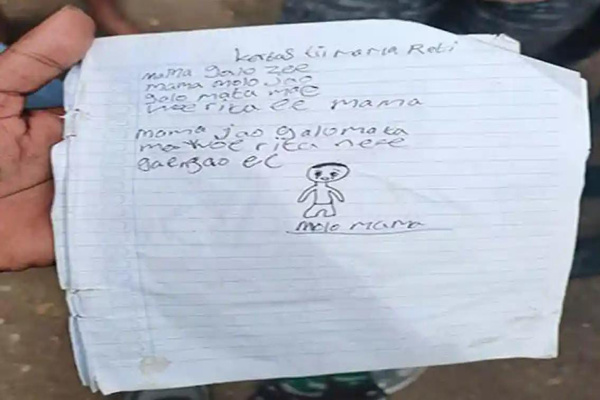 Kertas Tii mama Reti
mama galo zee
mama molo Jao
galo mata mae
woe rita ee mama
mama jao galo mata
mae woe rita nee
gae ngao ee
molo mama